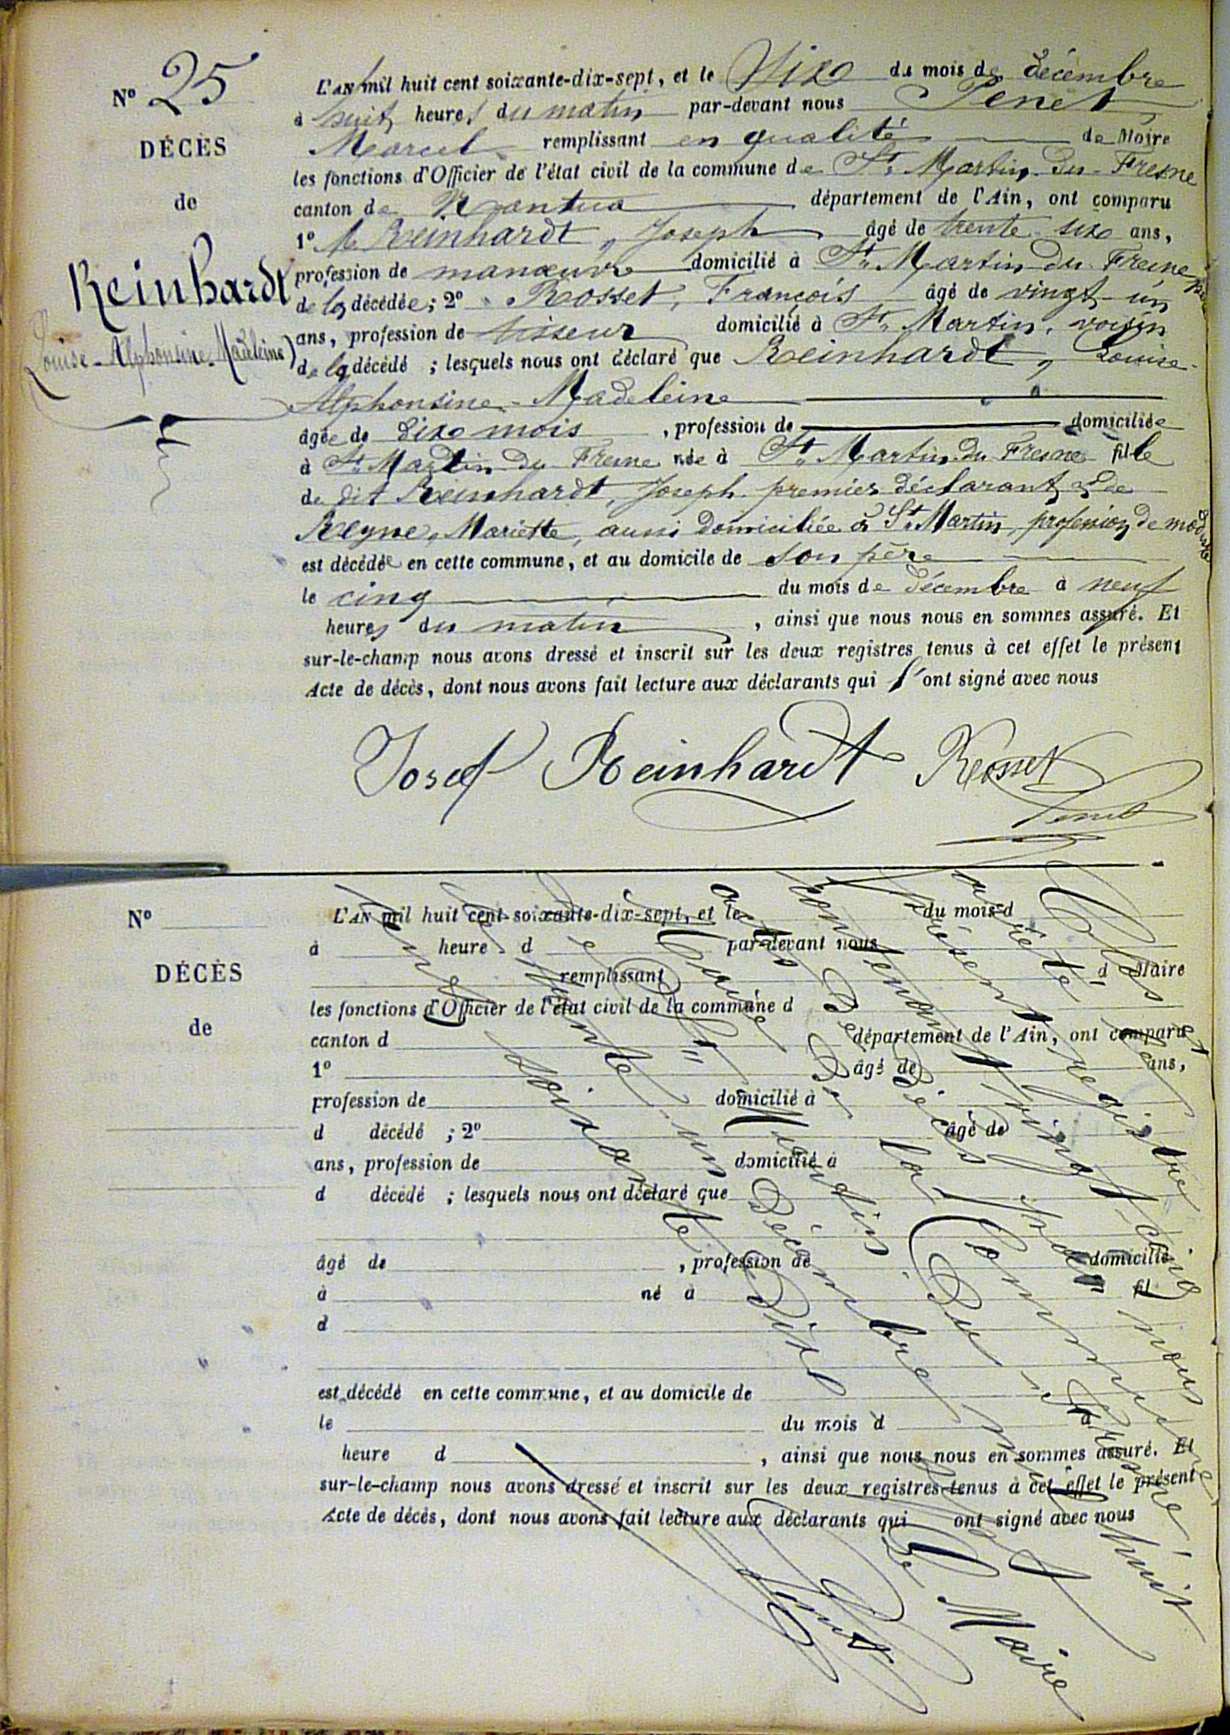 N° 25
DÉCÈS
de
Reinhardt
Louise-Alphonsine-Madeleine
L'AN mil huit cent soixante-dix-sept, et le Six du mois de décembre
à huit heures du matin par-devant nous Penet
Marcel remplissant en qualité de Maire
les fonctions d'Officier de l'état civil de la commune de St Martin-du-Fresne
canton de Nantua département de l'Ain, ont comparu
1° Reinhardt, Joseph âgé de trente-six ans,
profession de manœuvre domicilié à St Martin-du-Fresne
de la décédée; 2° Rosset, François âgé de vingt-un
ans, profession de tisseur domicilié à St Martin, voisin
de la décédé ; lesquels nous ont déclaré que Reinhardt, Louise-
Alphonsine-Madeleine
âgée de dix mois , profession de domiciliée
à St Martin-du-Fresne née à St Martin du Fresne fille
de dit Reinhardt, Joseph premier déclarant & de
Reyne, Mariette, aussi domiciliée à St Martin, profession de modiste
est décédée en cette commune, et au domicile de son père
le cinq du mois de décembre à neuf
heures du matin , ainsi que nous nous en sommes assuré. Et
sur-le-champ nous avons dressé et inscrit sur les deux registres tenus à cet effet le présent
Acte de décès, dont nous avons fait lecture aux déclarants qui l'ont signé avec nous
Josef Reinhardt Rosset
Penet
N°
DÉCÈS
de
L'AN mil huit cent soixante-dix-sept, et le du mois d
à heure d par-devant nous
remplissant d Maire
les fonctions d'Officier de l'état civil de la commune d
canton d département de l'Ain, ont comparu
1° âgé de ans,
profession de domicilié à
d décédé ; 2° âgé de
ans, profession de domicilié à
d décédé ; lesquels nous ont déclaré que
âgé de , profession de domicilié
à né à fil
d
est décédé en cette commune, et au domicile de
le du mois d à
heure d , ainsi que nous nous en sommes assuré. Et
sur-le-champ nous avons dressé et inscrit sur les deux registres tenus à cet effet le présent
Acte de décès, dont nous avons fait lecture aux déclarants qui ont signé avec nous
Clos et
arrêté le
présent registre
contenant vingt-cinq
actes de Décès par nous
Maire de la Commune
de St Martin-du-Fresne
le trente-un décembre mil huit
cent soixante-dix
Le Maire
Penet